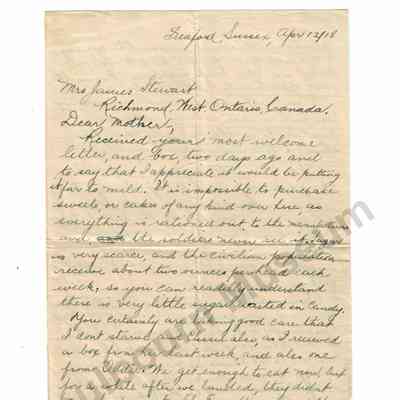 Seaford, Sussex, Apr 12/18
Mrs James Stewart
Richmond, West. Ontario, Canada.
Dear Mother,
Received yours most welcome
letter, and box, two days ago and
to say that I appreciate it would be putting
it far to mild. It is impossible to purchase
sweets, or cakes of any kind over here, as
everything is rationed out to the
and the soldiers never see it. Sugar
is very scarce, and the civilian population
receive about two ounces per head each
week, so you can readily understand
there is very little sugar wasted in Candy.
You certainly are taking good care that
I dont starve, also, as I received
a box from her last week, and also one
from We get enough to eat now, but
for a while after we landed, they didnt